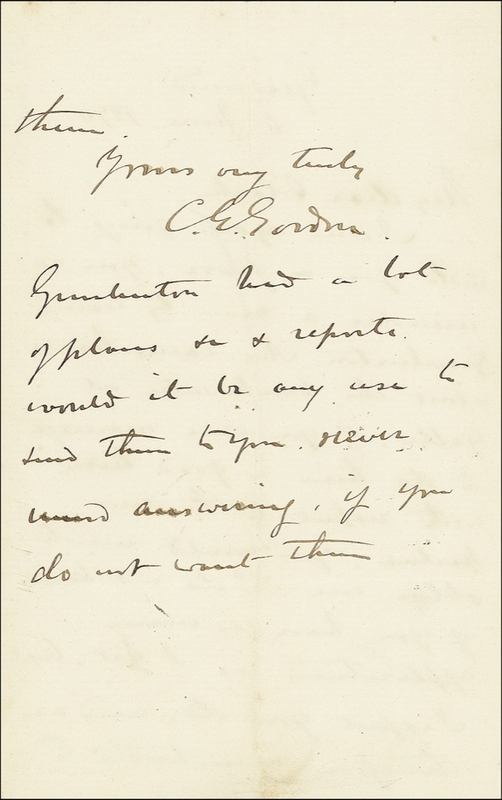 them.
Yours very truly
C. G. Gordon.
had a lot
of plans &c & reports.
would it be any use to
send them to you. never
mind answering, if you
do not want them